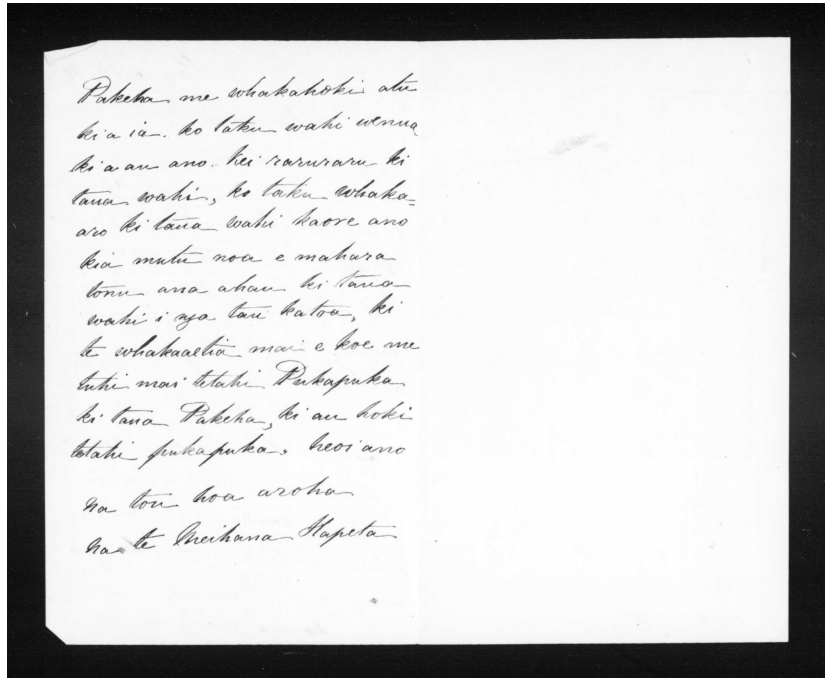 Pakeha me whakahoki atu
ki a ia. ko taku wahi wenua
ki a au ano. kei raruraru ki
tana wahi, ko taku whaka=
aro ki tana wahi kaore ano
kia mutu noa e mahara
tonu ana ahau ki tana
wahi i nga tau katoa, ki
te whakaaetia mai e koe me
tuhi mai tetahi Pukapuka
ki tana Pakeha, ki au hoki
tetahi pukapuka, heoi ano
na tou hoa aroha
na te Meihana Hapeta